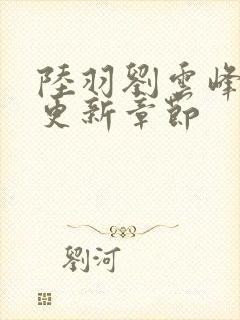 陸羽劉雲峰
更新章節
劉河